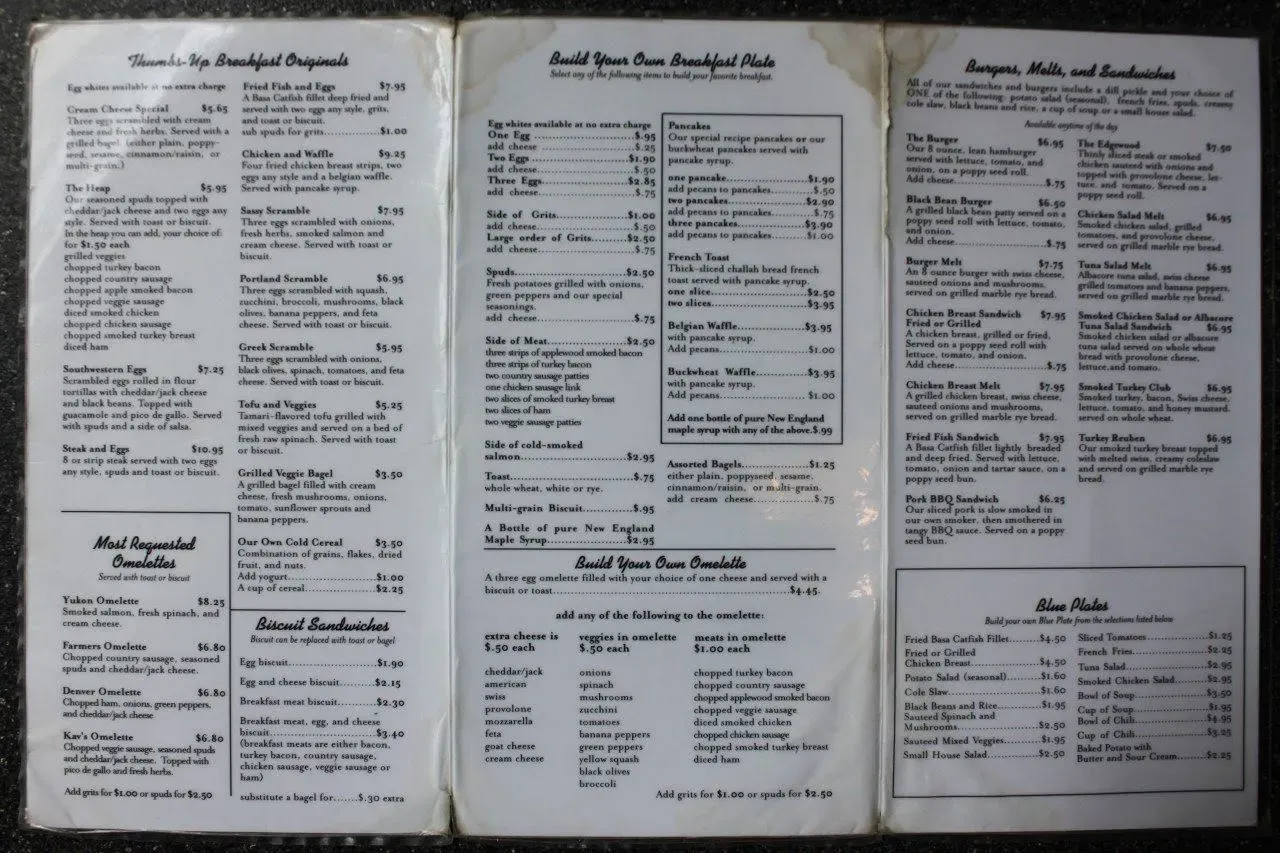 Thumbs-Up Breakfast Originals
Egg whites available at no extra charge
Cream Cheese Special $5.65
Three eggs scrambled with cream
cheese and fresh herbs. Served with a
grilled bagel. (either plain, poppy-
seed, sesame, cinnamon/raisin, or
multi-grain.)
The Heap $5.95
Our seasoned spuds topped with
cheddar/jack cheese and two eggs any
style. Served with toast or biscuit.
In the heap you can add, your choice of:
for $1.50 each
grilled veggies
chopped turkey bacon
chopped country sausage
chopped apple smoked bacon
chopped veggie sausage
diced smoked chicken
chopped chicken sausage
chopped smoked turkey breast
diced ham
Southwestern Eggs $7.25
Scrambled eggs rolled in flour
tortillas with cheddar/jack cheese
and black beans. Topped with
guacamole and pico de gallo. Served
with spuds and a side of salsa.
Steak and Eggs $10.95
8 oz strip steak served with two eggs
any style, spuds and toast or biscuit.
Fried Fish and Eggs $7.95
A Basa Catfish fillet deep fried and
served with two eggs any style, grits,
and toast or biscuit.
sub spuds for grits...............$1.00
Chicken and Waffle $9.25
Four fried chicken breast strips, two
eggs any style and a belgian waffle.
Served with pancake syrup.
Sassy Scramble $7.95
Three eggs scrambled with onions,
fresh herbs, smoked salmon and
cream cheese. Served with toast or
biscuit.
Portland Scramble $6.95
Three eggs scrambled with squash,
zucchini, broccoli, mushrooms, black
olives, banana peppers, and feta
cheese. Served with toast or biscuit.
Greek Scramble $5.95
Three eggs scrambled with onions,
black olives, spinach, tomatoes, and feta
cheese. Served with toast or biscuit.
Tofu and Veggies $5.25
Tamari-flavored tofu grilled with
mixed veggies and served on a bed of
fresh raw spinach. Served with toast
or biscuit.
Grilled Veggie Bagel $3.50
A grilled bagel filled with cream
cheese, fresh mushrooms, onions,
tomato, sunflower sprouts and
banana peppers.
Our Own Cold Cereal $3.50
Combination of grains, flakes, dried
fruit, and nuts.
Add yogurt........................$1.00
A cup of cereal...................$2.25
Most Requested
Omelettes
Served with toast or biscuit
Yukon Omelette $8.25
Smoked salmon, fresh spinach, and
cream cheese.
Farmers Omelette $6.80
Chopped country sausage, seasoned
spuds and cheddar/jack cheese.
Denver Omelette $6.80
Chopped ham, onions, green peppers,
and cheddar/jack cheese
Kav's Omelette $6.80
Chopped veggie sausage, seasoned spuds
and cheddar/jack cheese. Topped with
pico de gallo and fresh herbs.
Add grits for $1.00 or spuds for $2.50
Biscuit Sandwiches
Biscuit can be replaced with toast or bagel
Egg biscuit.......................$1.90
Egg and cheese biscuit........$2.15
Breakfast meat biscuit........$2.30
Breakfast meat, egg, and cheese
biscuit............................$3.40
(breakfast meats are either bacon,
turkey bacon, country sausage,
chicken sausage, veggie sausage or
ham)
substitute a bagel for.......$.30 extra
Build Your Own Breakfast Plate
Select any of the following items to build your favorite breakfast.
Egg whites available at no extra charge
One Egg ..........................$.95
add cheese........................$.25
Two Eggs.........................$1.90
add cheese........................$.50
Three Eggs.......................$2.85
add cheese........................$.75
Side of Grits.....................$1.00
add cheese........................$.50
Large order of Grits...........$2.50
add cheese........................$.75
Spuds.............................$2.50
Fresh potatoes grilled with onions,
green peppers and our special
seasonings.
add cheese........................$.75
Side of Meat.....................$2.50
three strips of applewood smoked bacon
three strips of turkey bacon
two country sausage patties
one chicken sausage link
two slices of smoked turkey breast
two slices of ham
two veggie sausage patties
Side of cold-smoked
salmon............................$2.95
Toast..............................$.75
whole wheat, white or rye.
Multi-grain Biscuit.............$.95
A Bottle of pure New England
Maple Syrup.....................$2.95
Pancakes
Our special recipe pancakes or our
buckwheat pancakes served with
pancake syrup.
one pancake......................$1.90
add pecans to pancakes.........$.50
two pancakes.....................$2.90
add pecans to pancakes.........$.75
three pancakes...................$3.90
add pecans to pancakes.........$1.00
French Toast
Thick-sliced challah bread french
toast served with pancake syrup.
one slice..........................$2.50
two slices.........................$3.95
Belgian Waffle...................$3.95
with pancake syrup.
Add pecans.......................$1.00
Buckwheat Waffle..............$3.95
with pancake syrup.
Add pecans.......................$1.00
Add one bottle of pure New England
maple syrup with any of the above.$.99
Assorted Bagels..................$1.25
either plain, poppyseed, sesame,
cinnamon/raisin, or multi-grain.
add cream cheese................$.75
Build Your Own Omelette
A three egg omelette filled with your choice of one cheese and served with a
biscuit or toast..................................$4.45.
add any of the following to the omelette:
extra cheese is
$.50 each
cheddar/jack
american
swiss
provolone
mozzarella
feta
goat cheese
cream cheese
veggies in omelette
$.50 each
onions
spinach
mushrooms
zucchini
tomatoes
banana peppers
green peppers
yellow squash
black olives
broccoli
meats in omelette
$1.00 each
chopped turkey bacon
chopped country sausage
chopped applewood smoked bacon
chopped veggie sausage
diced smoked chicken
chopped chicken sausage
chopped smoked turkey breast
diced ham
Add grits for $1.00 or spuds for $2.50
Burgers, Melts, and Sandwiches
All of our sandwiches and burgers include a dill pickle and your choice of
ONE of the following: potato salad (seasonal), french fries, spuds, creamy
cole slaw, black beans and rice, a cup of soup or a small house salad.
Available anytime of the day
The Burger $6.95
Our 8 ounce, lean hamburger
served with lettuce, tomato, and
onion, on a poppy seed roll.
Add cheese........................$.75
Black Bean Burger $6.50
A grilled black bean patty served on a
poppy seed roll with lettuce, tomato,
and onion.
Add cheese........................$.75
Burger Melt $7.75
An 8 ounce burger with swiss cheese,
sauteed onions and mushrooms,
served on grilled marble rye bread.
Chicken Breast Sandwich $7.95
Fried or Grilled
A chicken breast, grilled or fried.
Served on a poppy seed roll with
lettuce, tomato, and onion.
Add cheese........................$.75
Chicken Breast Melt $7.95
A grilled chicken breast, swiss cheese,
sauteed onions and mushrooms,
served on grilled marble rye bread.
Fried Fish Sandwich $7.95
A Basa Catfish fillet lightly breaded
and deep fried. Served with lettuce,
tomato, onion and tartar sauce, on a
poppy seed bun.
Pork BBQ Sandwich $6.25
Our sliced pork is slow smoked in
our own smoker, then smothered in
tangy BBQ sauce. Served on a poppy
seed bun.
The Edgewood $7.50
Thinly sliced steak or smoked
chicken sauteed with onions and
topped with provolone cheese, let-
tuce, and tomato. Served on a
poppy seed roll.
Chicken Salad Melt $6.95
Smoked chicken salad, grilled
tomatoes, and provolone cheese,
served on grilled marble rye bread.
Tuna Salad Melt $6.95
Albacore tuna salad, swiss cheese
grilled tomatoes and banana peppers,
served on grilled marble rye bread.
Smoked Chicken Salad or Albacore
Tuna Salad Sandwich $6.95
Smoked chicken salad or albacore
tuna salad served on whole wheat
bread with provolone cheese,
lettuce,and tomato.
Smoked Turkey Club $6.95
Smoked turkey, bacon, Swiss cheese,
lettuce, tomato, and honey mustard,
served on whole wheat.
Turkey Reuben $6.95
Our smoked turkey breast topped
with melted swiss, creamy coleslaw
and served on grilled marble rye
bread.
Blue Plates
Build your own Blue Plate from the selections listed below
Fried Basa Catfish Fillet.......$4.50
Fried or Grilled
Chicken Breast...................$4.50
Potato Salad (seasonal).........$1.60
Cole Slaw.........................$1.60
Black Beans and Rice...........$1.95
Sauteed Spinach and
Mushrooms.......................$2.50
Sauteed Mixed Veggies.........$1.95
Small House Salad..............$2.50
Sliced Tomatoes.................$1.25
French Fries......................$2.25
Tuna Salad.......................$2.95
Smoked Chicken Salad.........$2.95
Bowl of Soup.....................$3.50
Cup of Soup......................$1.95
Bowl of Chili.....................$4.95
Cup of Chili......................$3.25
Baked Potato with
Butter and Sour Cream........$2.25